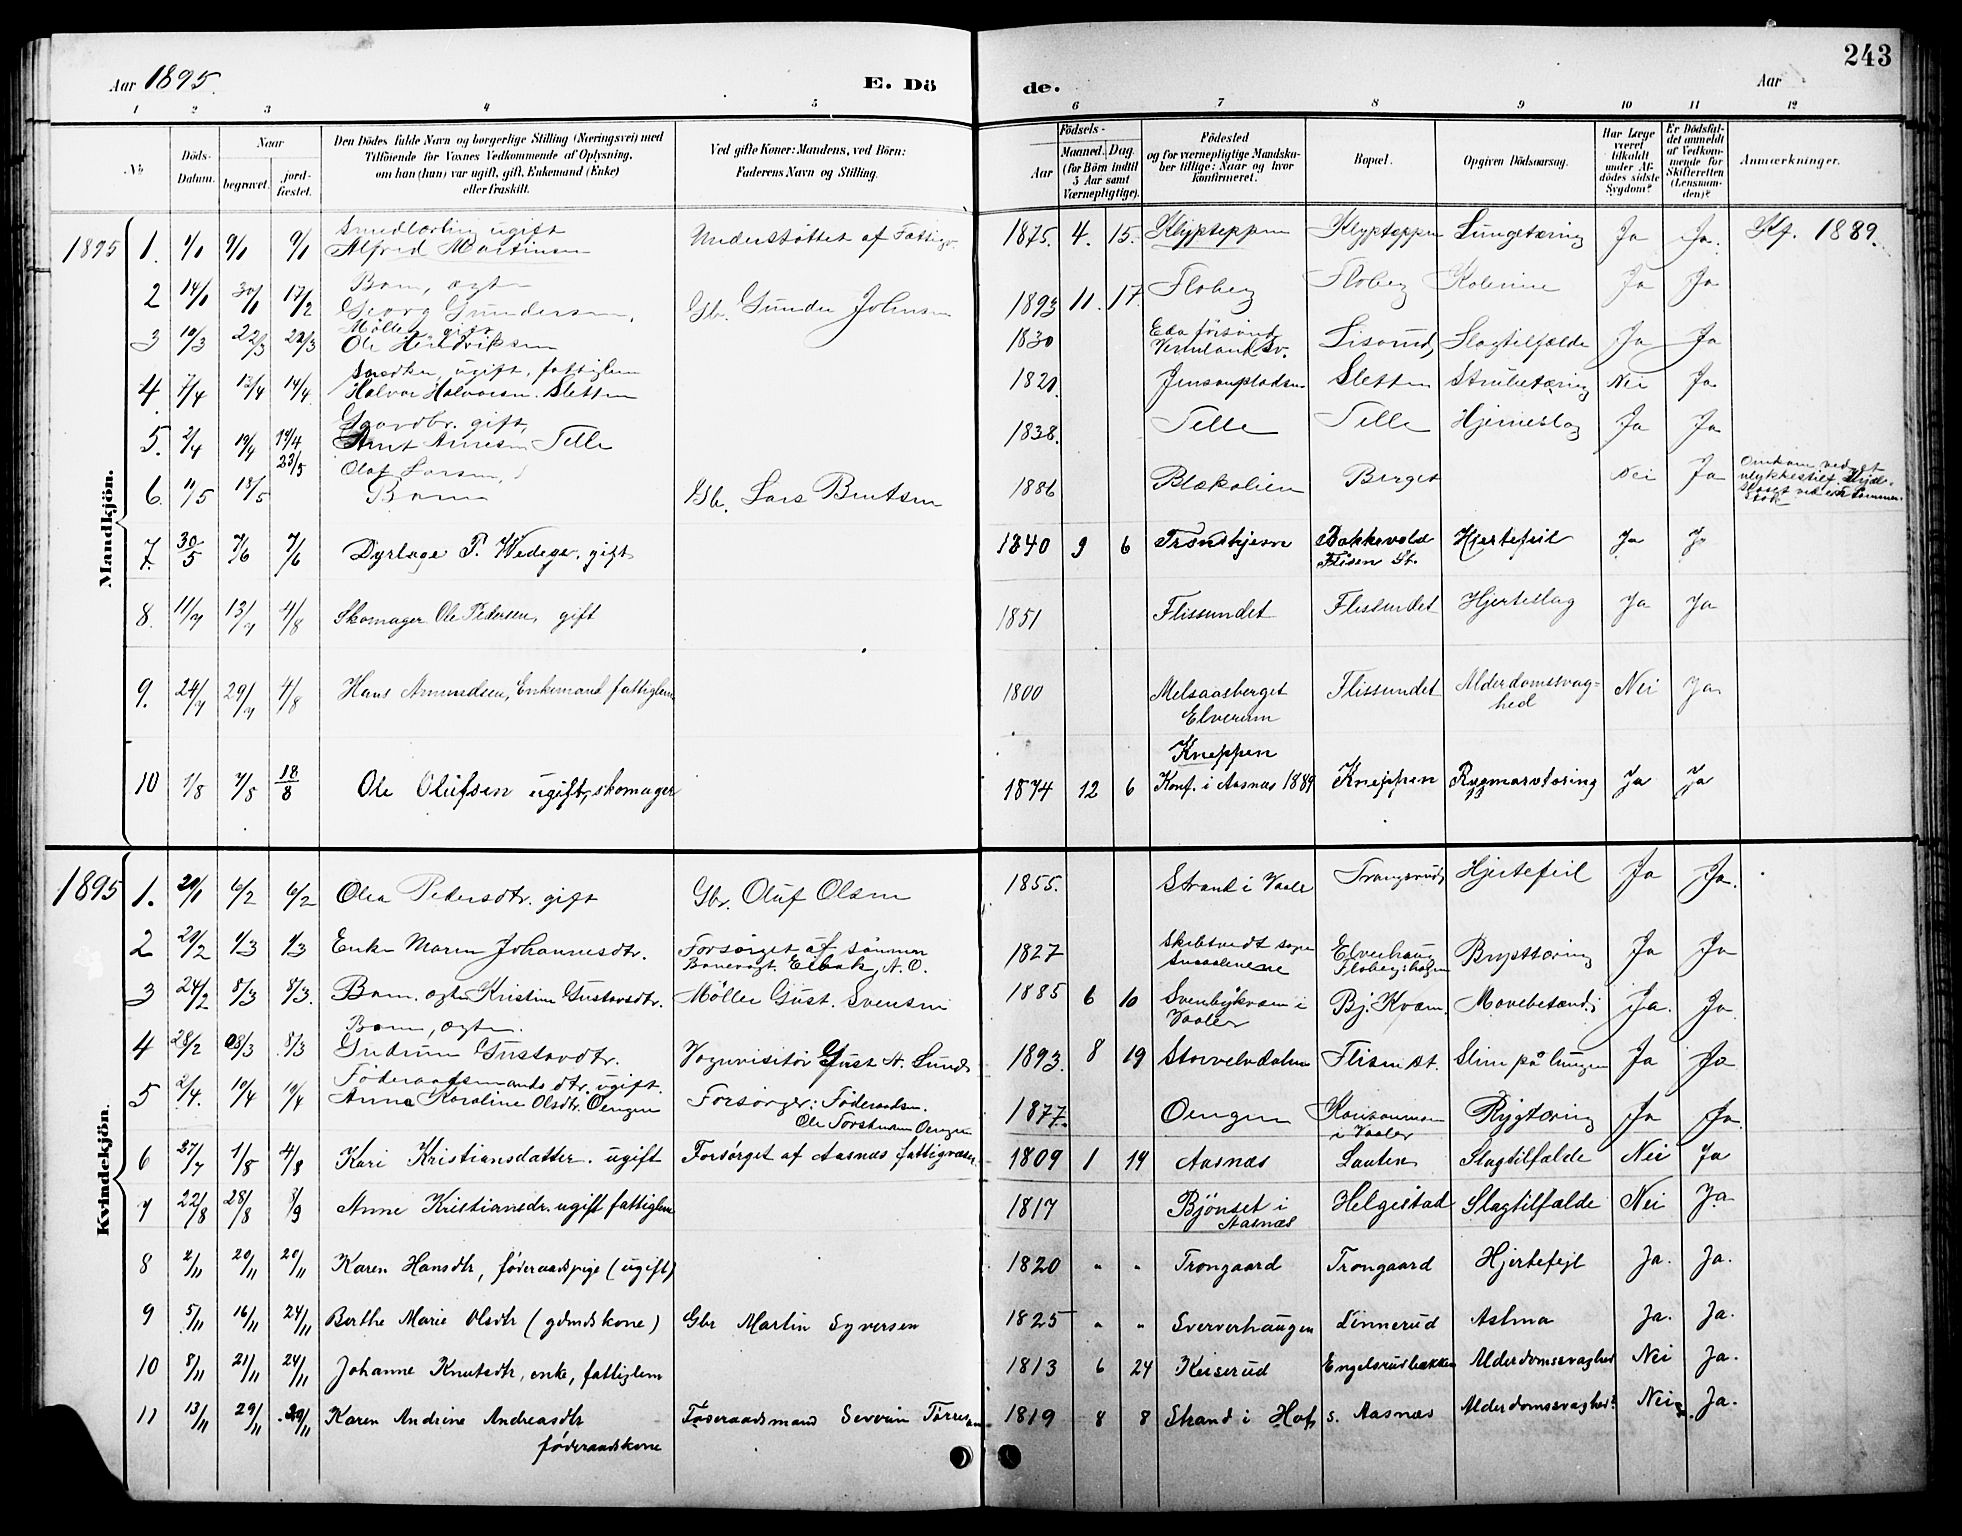 243
Aar 1895. E. Dö
de. Aar
1 2 3 4 5 6 7 8 9 10 11 12
No
Döds-Datum.
Naar
begravet.
jordfæstet.
Den Dödes fulde Navn og borgerlige Stilling (Næringsvei) med
Tilföiende for Voxnes Vedkommende af Oplysning,
om han (hun) var ugift, gift, Enkemand (Enke)
eller fraskilt.
Ved gifte Koner: Mandens, ved Börn:
Faderens Navn og Stilling.
Födsels-
Aar
Maaned. Dag
(for Börn indtil
5 Aar samt
Værnepligtige).
Födested
og for værnepligtige Mandskaber
tillige: Naar og hvor
konfirmeret.
Bopæl.
Opgiven Dödsaarsag.
Har Læge været tilkaldt under Afdödes sidste Sygdom?
Er Dödsfaldet anmeldt af Vedkommende for Skifteretten (Lensmanden)?
Anmærkninger.
Mandkjön.
1895 1. 4/1 9/1 9/1 Smedlærling ugift Alfred Martinsen Understøttet af Fattigv. 1875. 4. 15. Klypteppen Klypteppen Lungetæring Ja Ja. Kf. 1889.
2 14/1 30/1 17/2 Barn, ægte Georg Gundersen, Gbr. Gunder Johnsen 1893 11. 17. Floberg Floberg Kolerine Ja Ja
3 10/3 22/3 22/3 Møller, gift Ole Hendriksen 1830 Eda Vermland Sv. Lisound, Slagtilfælde Ja Ja
4 7/4 12/4 14/4 Snedker, ugift, fattiglem Halvor Halvorsen Sletten 1821. Jensonpladsen Sletten Strubetæring Nei Ja
5. 2/4 19/4 19/4 Gaardbr. gift, Arnt Arnesen Telle 1838. Telle Telle Hjerneslag Ja Ja
6. 11/5 18/5 23/5 Olaf Larsen, Barn Gb. Lars Berntsen 1886 Blækalien Berget Nei Ja Omkom ved et ulykkestilf.
7. 30/5 7/6 7/6 Dyrlæge P. Wedege, gift 1840 9 6 Trondhjem Bakkevold Flisen St. Hjertefeil Ja Ja
8. 11/7 13/7 4/8 Skomager Ole Pedersen, gift 1851 Flissundet Flissundet Hjerteslag Ja Ja
9. 24/7 29/7 4/8 Hans Amundsen, Enkemand fattiglem 1800 Melsaasberget Elverum Flissundet Alderdomssvaghed Nei Ja
10 1/8 7/8 18/8 Ole Olufsen ugift, skomager 1874 12 6 Kneppen Konf. i Aasnæs 1889 Kneppen Rygmarvtæring Ja Ja
Kvindekjön.
1895 1. 20/1 6/2 6/2 Olea Pedersdtr. gift Gbr. Oluf Olsen 1855. Strand i Vaaler Trangsrud, Hjertefeil Ja Ja.
2 20/2 1/3 1/3 Enke Maren Johannesdtr. Forsørget af sønnen Banevogt. Elbak, A. O. 1827 Skibtvedt sogn Smaalenene Elverhaug Flobergshagen Brysttæring Ja Ja
3 24/2 8/3 8/3. Barn. ægte Kristine Gustavsdtr. Møller Gust. Svensen 1885 6 10 Svenbykvæn i Vaaler Bj. Kvæn. Mavebetænd. Ja. Ja
4 28/2 8/3 8/3 Barn, ægte. Gudrun Gustavdtr. Vognvisitør Gust A. Lund 1893. 8 19 Storelvdalen Flisen St. Slim på lungen Ja Ja
5 2/4. 10/4 10/4 Føderaadsmands dtr. ugift. Anna Karoline Olsdtr. Oengen Forsørger: Føderaadsm. Ole Torstensen Oengen 1877. Oengen i Vaaler Rygtæring Ja Ja.
6 27/7 1/8 4/8 Kari Kristiansdatter. ugift Forsørget af Aasnæs fattigvæsen 1809 1 19 Aasnæs Lauten Slagtilfælde Nei Ja
7 22/8 28/8 8/9 Anne Kristiansdr. ugift fattiglem 1817 Bjønset i Aasnæs Helgestad Slagtilfælde Nei Ja
8 2/11 20/11 20/11 Karen Hansdtr, føderaadspige (ugift) 1820 " " Trongaard Trongaard Hjertefejl Ja. Ja.
9 5/11 16/11 24/11 Berthe Marie Olsdtr (gdmdskone) Gbr Martin Syversen 1825 " " Sververhaugen Linnerud Astma Ja. Ja.
10 8/11 21/11 24/11 Johanne Knutsdtr, enke, fattiglem 1813 6 24 Keiserud Engelsrudbakken Alderdomssvaghed Nei Ja.
11 13/11 29/11 29/11 Karen Andrine Andreasdtr føderaadskone Føderaadsmand Severin Torresen 1819 8 8 Strand i Hof s. Aasnæs Alderdomssvaghed Nei Ja.